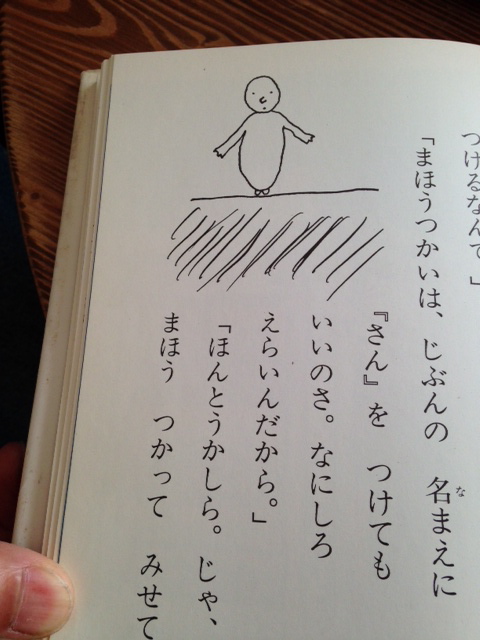 つけるなんて」
「まほうつかいは、じぶんの 名まえに
な
『さん』を つけても
いいのさ。なにしろ
えらいんだから。」
「ほんとうかしら。じゃ、
まほう つかって みせて